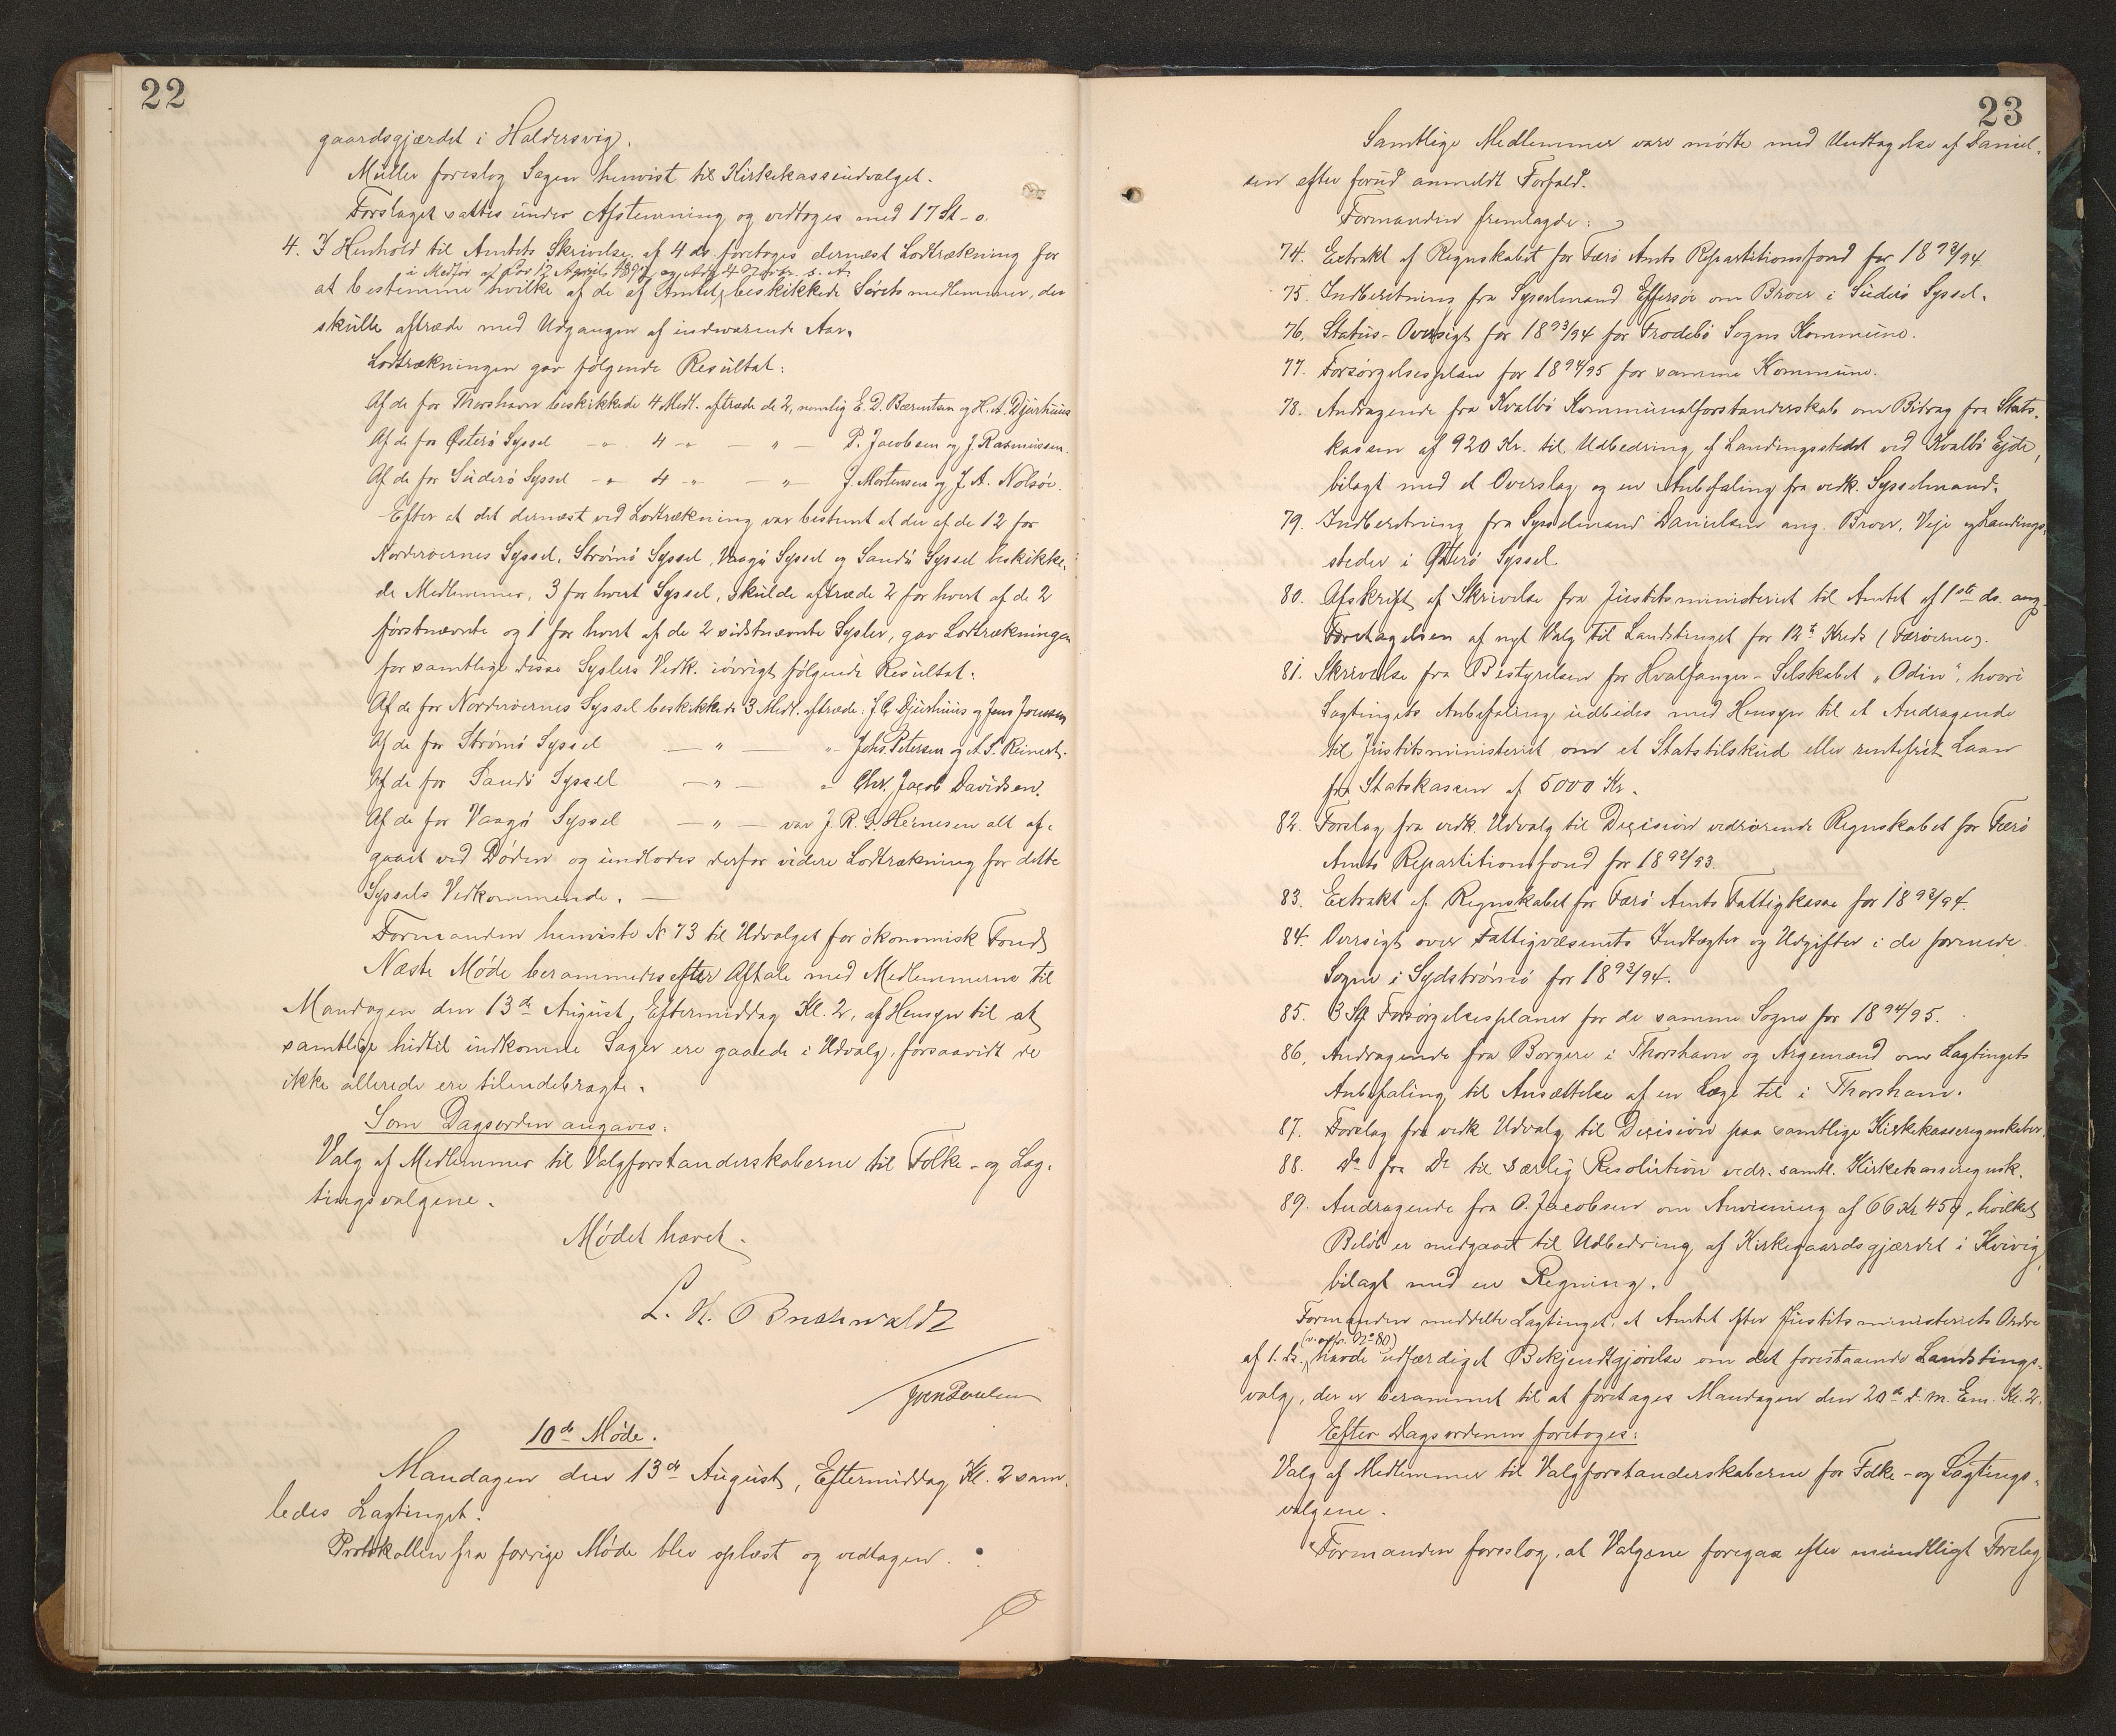 22
gaardsgjærdet i Haldersvig.
Müller foreslog Sagen henvist til Kirkekasseudvalget.
Forslaget sattes under Afstemning og vedtoges med 17 St - 0.
4. I Henhold til Amtets Skrivelse af 4 ds foretoges dernæst Lodtrækning for
i Medfør af Lov 12 April 1892 og
at bestemme hvilke af de af Amtet beskikkede medlemmer, der
skulle aftræde med Udgangen af indeværende Aar.
Lodtrækningen gav følgende Resultat:
Af de for Thorshavn beskikkede 4 Medl. aftræde de 2, nemlig E. D. Bærentsen og H. A. Djurhuus
Af de for Østerø Syssel - " 4 - " - " - P. Jacobsen og J. Rasmussen.
Af de for Suderø Syssel - " 4 - " - " - J. Mortensen og J. A. Nolsøe.
Efter at det dernæst ved Lodtrækning var bestemt at der af de 12 for
Norderøernes Syssel, Strømø Syssel, Vaagø Syssel og Sandø Syssel beskikke-
de Medlemmer, 3 for hvert Syssel, skulde aftræde 2 for hvert af de 2
førstnævnte og 1 for hvert af de 2 sidstnævnte Sysler, gav Lodtrækningen
for samtlige disse Syslers Vedk. iøvrigt følgende Resultat:
Af de for Norderøernes Syssel beskikkede 3 Medl. aftræde: J. C. Djurhuus og Jens Joensen
Af de for Strømø Syssel — " — " - Johs. Petersen og A. S. Reinert.
Af de for Sandø Syssel — " — " Chr. Jacob Davidsen.
Af de for Vaagø Syssel — " — var J. R. G. Hernesen alt af-
gaaet ved Døden og undlodes derfor videre Lodtrækning for dette
Syssels Vedkommende. —
Formanden henviste N 73 til Udvalget for økonomisk Fond
Næste Møde berammedes efter Aftale med Medlemmerne til
Mandagen den 13de August, Eftermiddag Kl. 2, af Hensyn til at
samtlige hidtil indkomne Sager ere gaaede i Udvalg, forsaavidt de
ikke allerede ere tilendebragte.
Som Dagsorden angaves:
Valg af Medlemmer til Valgforstanderskaberne til Folke- og Lag-
tingsvalgene.
Mødet hævet.
L. H. Buchwaldt
Joen Poulsen
10de Møde.
Mandagen den 13de August, Eftermiddag Kl. 2 sam-
ledes Lagtinget.
Protokollen fra forrige Møde blev oplæst og vedtagen.
23
Samtlige Medlemmer vare mødte med Undtagelse af Daniel-
sen efter forud anmeldt Forfald.
Formanden fremlagde:
74. Extrakt af Regnskabet for Færø Amts Repartitionsfond for 1893/94
75. Indberetning fra Sysselmand Effersøe om Broer i Suderø Syssel.
76. Status-Oversigt for 1893/94 for Frodebø Sogns Kommune.
77. Forsørgelsesplan for 1894/95 for samme Kommune.
78. Andragende fra Kvalbø Kommunalforstanderskab om Bidrag fra Stats-
kassen af 920 Kr. til Udbedring af Landingsstedet ved Kvalbø Ejde,
bilagt med et Overslag og en Anbefaling fra vedk. Sysselmand.
79. Indberetning fra Sysselmand Danielsen ang. Broer, Veje og Landings-
steder i Østerø Syssel
80. Afskrift af Skrivelse fra Justitsministeriet til Amtet af 1ste ds. ang.
Foretagelsen af nyt Valg til Landstinget for 12te Kreds (Færøerne).
81. Skrivelse fra Bestyrelsen for Hvalfanger-Selskabet "Odin", hvori
Lagtingets Anbefaling udbedes med Hensyn til et Andragende
til Justitsministeriet om et Statstilskud eller rentefrit Laan
fra Statskassen af 5000 Kr.
82. Forslag fra vedk. Udvalg til Decision vedrørende Regnskabet for Færø
Amts Repartitionsfond for 1892/93.
83. Extrakt af Regnskabet for Færø Amts Fattigkasse for 1893/94.
84. Oversigt over Fattigvæsenets Indtægter og Udgifter i de forenede
Sogne i Sydstrømø for 1893/94.
85. 3 St. Forsørgelsesplaner for de samme Sogne for 1894/95.
86. Andragende fra Borgere i Thorshavn og Argemænd om Lagtingets
Anbefaling til Ansættelse af en Læge til i Thorshavn.
87. Forslag fra vedk. Udvalg til Decision paa samtlige Kirkekasseregnskaber.
88. Do fra Do til særlig Resolution vedr. samtl. Kirkekasseregnsk.
89. Andragende fra O. Jacobsen om Anvisning af 66 Kr 45 Ø, hvilket
Beløb er medgaaet til Udbedring af Kirkegaardsgjærdet i Kvivig,
bilagt med en Regning.
Formanden meddelte Lagtinget, at Amtet efter Justitsministeriets Ordre
(v. opfr. No 80)
af 1. ds. havde udfærdiget Bekjendtgjørelse om det forestaaende Landstings-
valg, der er berammet til at foretages Mandagen den 20de d. M. Em. Kl. 2.
Efter Dagsordenen foretoges:
Valg af Medlemmer til Valgforstanderskaberne for Folke- og Lagtings-
valgene.
Formanden foreslog, at Valgene foregaa efter mundtligt Forslag